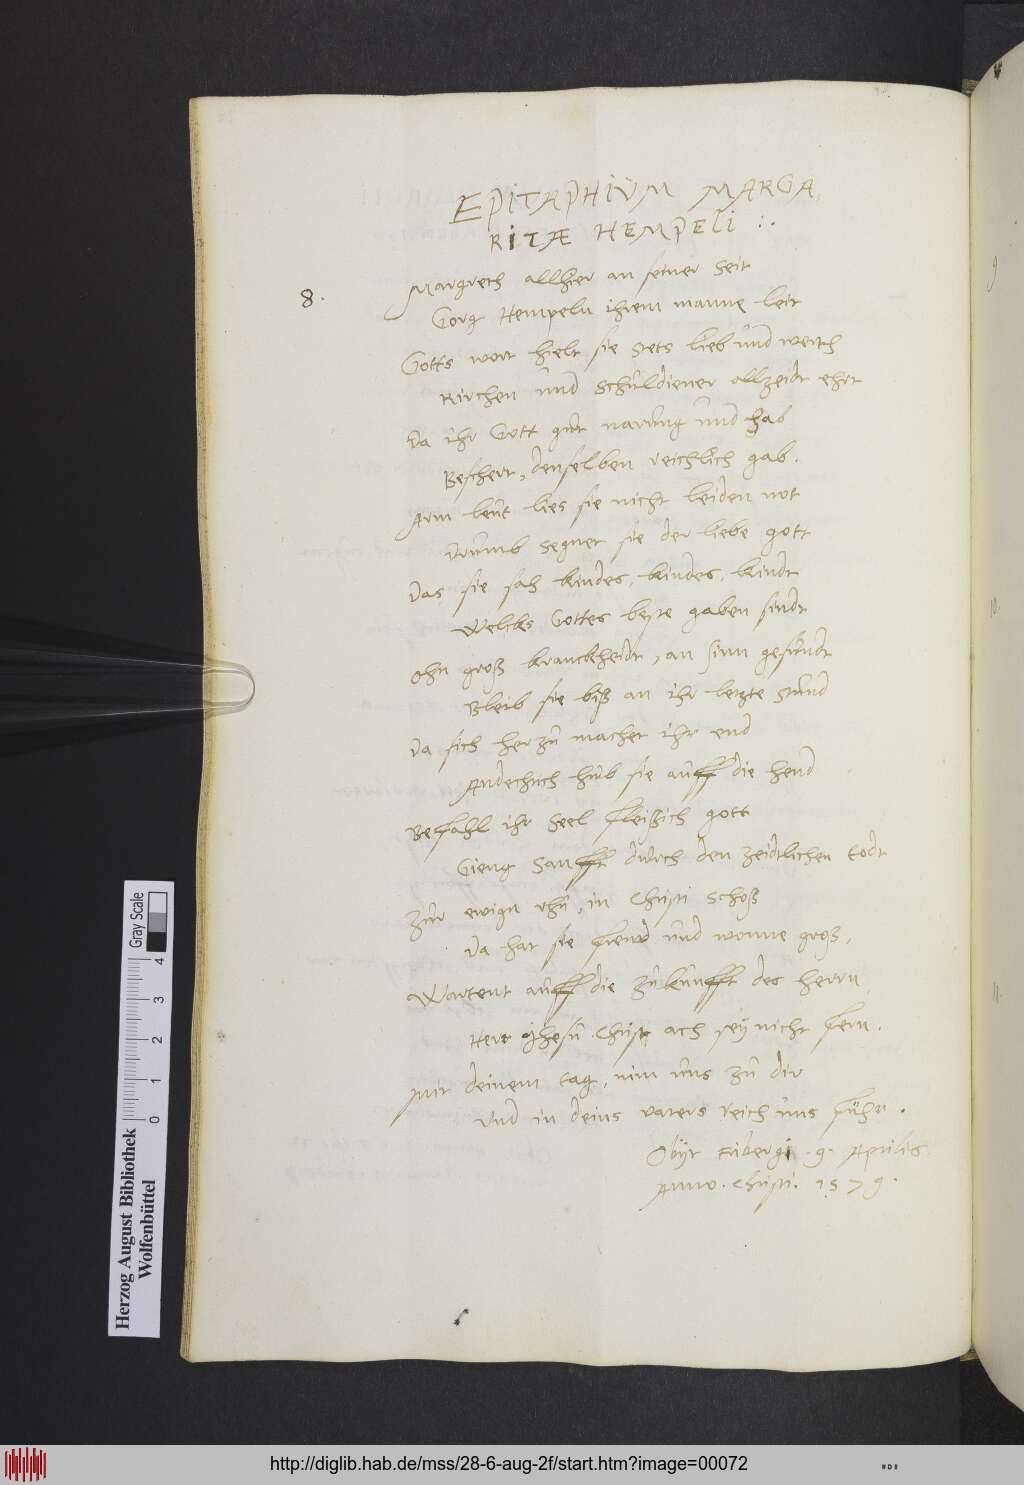 EPITAPHIUM MARGA,
RITÆ HEMPELI :.
8.
Margreth allhier an seiner Seit
Gorg Hempeln ihrem manne leit
Gotts wort hielt sie stets lieb und werth
Kirchen und Schuldiener allzeidt ehrt
Da ihr Gott gut narung und hab
Beschert, denselben reichlich gab.
Arm leut lies sie nicht leiden not
Drumb segnet sie der liebe gott
Das sie sah kindes, kindes, kindt
Welchs Gottes beste gaben sindt
Ohn groß kranckheidt, an sinn gesundt
Bleib sie biß an ihr letzte stund
Da sich herzu machet ihr end
Andechtich hub sie auff die hend
Befahl ihr Seel fleißich gott
Gieng Sanfft durch den zeidtlichen todt
Zur ewign rhu, in Christi schoß
Da hat sie freud und wonne groß,
Wartent auff die zukunfft des herrn
Herr Jhesu Christ ach sey nicht fern.
Mit deinem tag, nim uns zu dir
Und in deins vaters reich uns führ.
Obijt Fribergi . 9. Aprilis
Anno. Christi. 1579.
Gray Scale
0 1 2 3 4
Herzog August Bibliothek
Wolfenbüttel
9
10.
11.
http://diglib.hab.de/mss/28-6-aug-2f/start.htm?image=00072